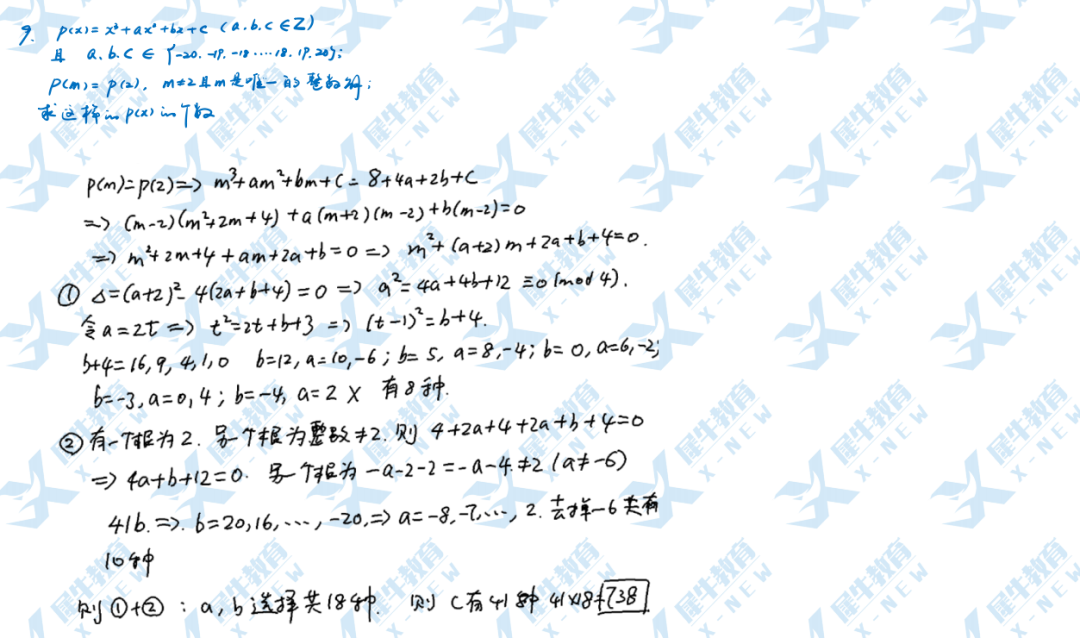 9. p(x)=x³+ax²+bx+c (a.b.c∈Z)
且 a.b.c ∈ {-20.-19.-18....18.19.20};
p(m)=p(2), m≠2且m是唯一的整数解;
求这样的p(x)的个数
p(m)=p(2)=> m³+am²+bm+c=8+4a+2b+c
=> (m-2)(m²+2m+4)+a(m+2)(m-2)+b(m-2)=0
=> m²+2m+4+am+2a+b=0 => m²+(a+2)m+2a+b+4=0.
① Δ=(a+2)²-4(2a+b+4)=0 => a²=4a+4b+12≡0(mod 4).
令a=2t => t²=2t+b+3 => (t-1)²=b+4.
b+4=16,9,4,1,0 b=12,a=10,-6; b=5, a=8,-4; b=0,a=6,-2;
b=-3,a=0,4; b=-4, a=2 × 有8种.
② 有一个根为2. 另一个根为整数≠2. 则 4+2a+4+2a+b+4=0
=> 4a+b+12=0. 另一个根为-a-2-2=-a-4≠2 (a≠-6)
4|b.=>. b=20,16,···,-20,=> a=-8,-7,···,2. 去掉-6共有
10种
则①+②: a,b选择共18种. 则 c有41种 41×18=738
犀牛教育
X-NEW